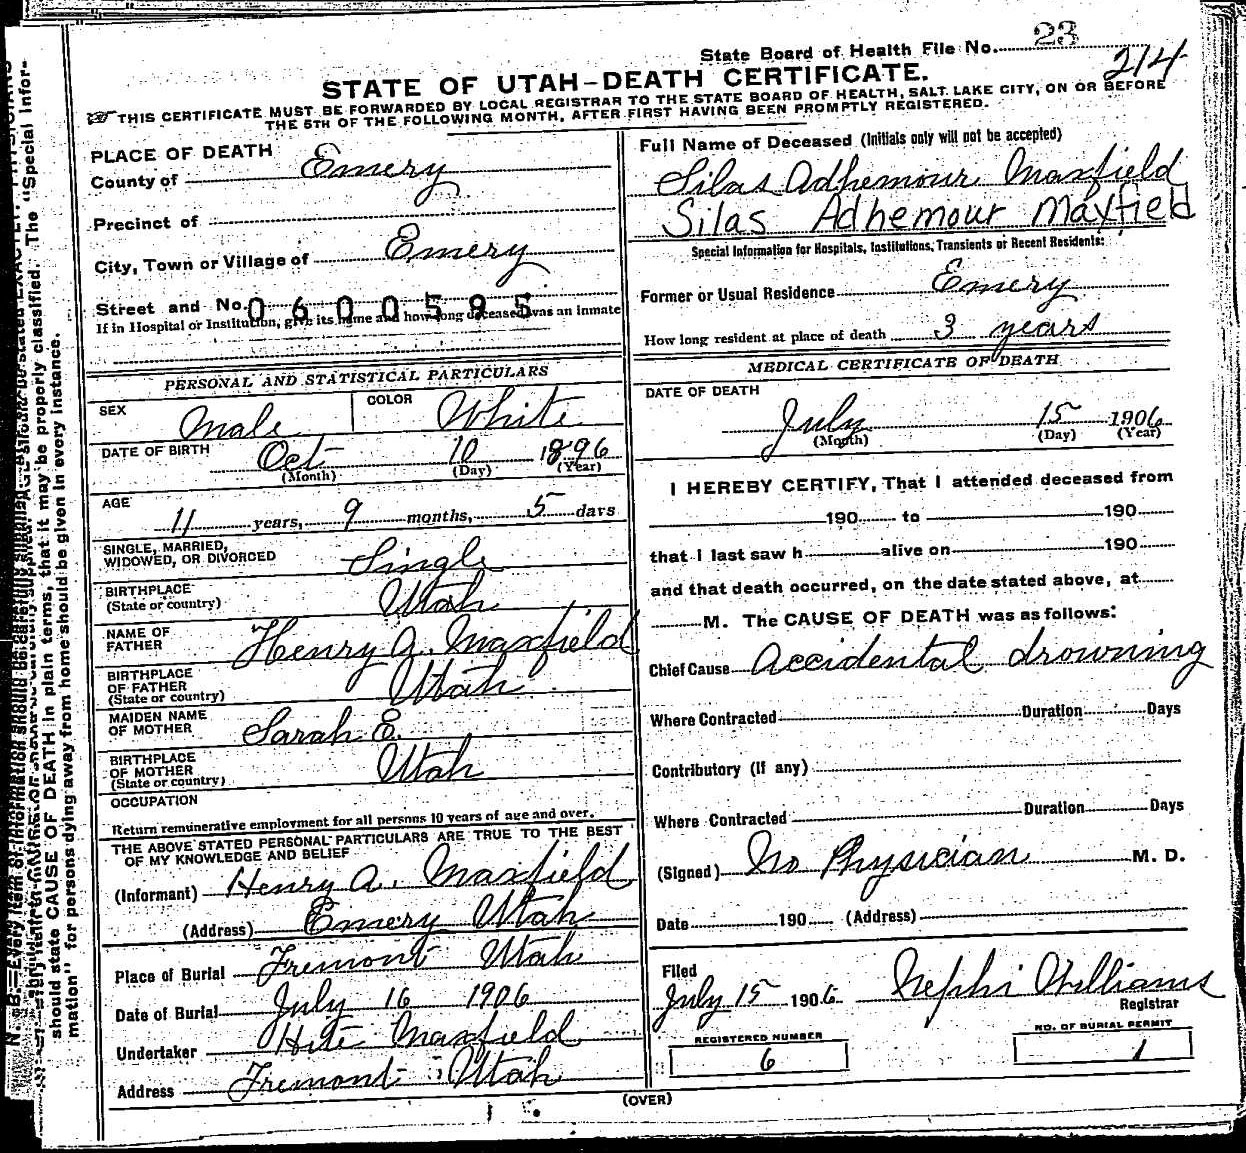 State Board of Health File No. 23
214
STATE OF UTAH-DEATH CERTIFICATE.
THIS CERTIFICATE MUST BE FORWARDED BY LOCAL REGISTRAR TO THE STATE BOARD OF HEALTH, SALT LAKE CITY, ON OR BEFORE
THE 5TH OF THE FOLLOWING MONTH, AFTER FIRST HAVING BEEN PROMPTLY REGISTERED.
PLACE OF DEATH
County of Emery
Precinct of
City, Town or Village of Emery
Street and No. 0600595
If in Hospital or Institution, give its name and how long deceased was an inmate
PERSONAL AND STATISTICAL PARTICULARS
SEX Male COLOR White
DATE OF BIRTH Oct 10 1896
(Month) (Day) (Year)
AGE 11 years, 9 months, 5 days
SINGLE, MARRIED,
WIDOWED, OR DIVORCED Single
BIRTHPLACE
(State or country) Utah
NAME OF
FATHER Henry A. Maxfield
BIRTHPLACE
OF FATHER
(State or country) Utah
MAIDEN NAME
OF MOTHER Sarah E.
BIRTHPLACE
OF MOTHER
(State or country) Utah
OCCUPATION
Return remunerative employment for all persons 10 years of age and over.
THE ABOVE STATED PERSONAL PARTICULARS ARE TRUE TO THE BEST
OF MY KNOWLEDGE AND BELIEF
(Informant) Henry A. Maxfield
(Address) Emery Utah
Place of Burial Fremont Utah
Date of Burial July 16 1906
Undertaker Hite Maxfield
Address Fremont Utah
Full Name of Deceased (Initials only will not be accepted)
Silas Adhemour Maxfield
Silas Adhemour Maxfield
Special Information for Hospitals, Institutions, Transients or Recent Residents:
Former or Usual Residence Emery
How long resident at place of death 3 years
MEDICAL CERTIFICATE OF DEATH
DATE OF DEATH
July 15 1906
(Month) (Day) (Year)
I HEREBY CERTIFY, That I attended deceased from
190 to 190
that I last saw h alive on 190
and that death occurred, on the date stated above, at
M. The CAUSE OF DEATH was as follows:
Chief Cause Accidental drowning
Where Contracted Duration Days
Contributory (If any)
Where Contracted Duration Days
(Signed) No Physician M. D.
Date 190 (Address)
Filed
July 15 1906 Nephi Williams
Registrar
REGISTERED NUMBER
6
NO. OF BURIAL PERMIT
1
(OVER)
should state CAUSE OF DEATH in plain terms, that it may be properly classified. The "Special Infor-
mation" for persons dying away from home should be given in every instance.